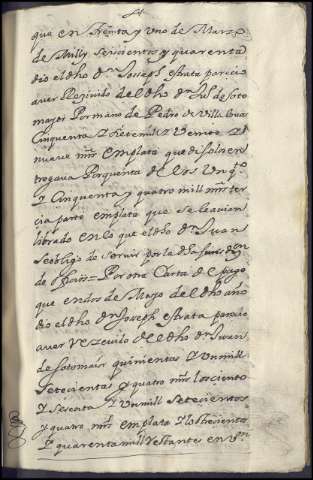 que en treinta y uno de Marzo
de mill y seiscientos y quarenta
dio el dho Dn Joseph estrata parecio
aver Rezivido del dho Dn Jul de soto
mayor Por mano de Pedro de Villa
Cinquenta y siete mill y Veinte y
nueve mrs en plata que dijo le en
tregava Por quenta de los Un qo
y Cinquenta y quatro mill mrs ter
cia parte en plata que se le avian
librado en lo que el dho Dn Juan
se obligo de servir por la
de = Por otra Carta de pago
que en dos de Mayo del dho año
dio el dho Dn Joseph estrata parecio
aver rezevido del dho Dn Juan
de sotomaior quinientas y Un mill
setecientos y quatro mrs los ciento
y sesenta y Un mill setecientos
y quatro mrs en plata y los trescientos
y quarenta mill restantes en Von